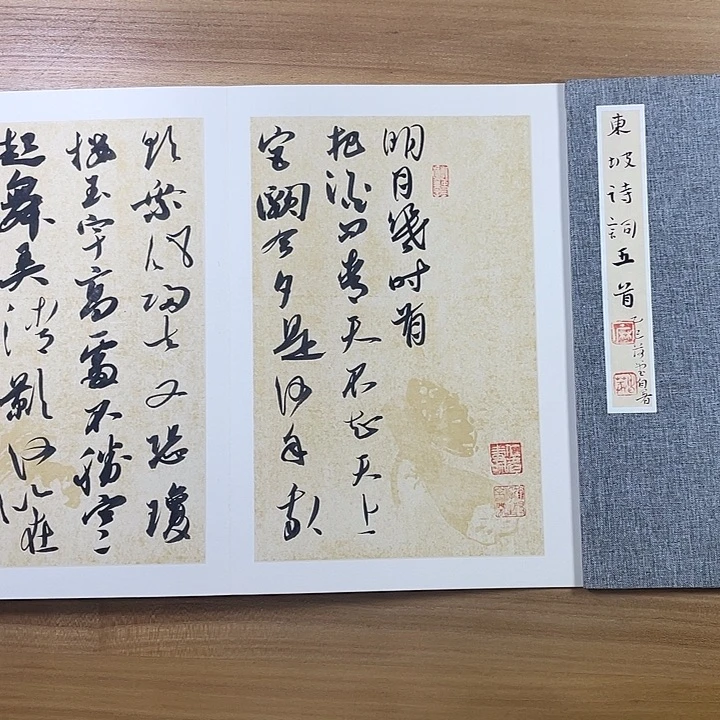 東坡诗詞五首
明月幾时有
把酒问青天不知天上
宫闕今夕是何年我
欲乘风归去又恐瓊
楼玉宇高處不勝寒
起舞弄清影何似在